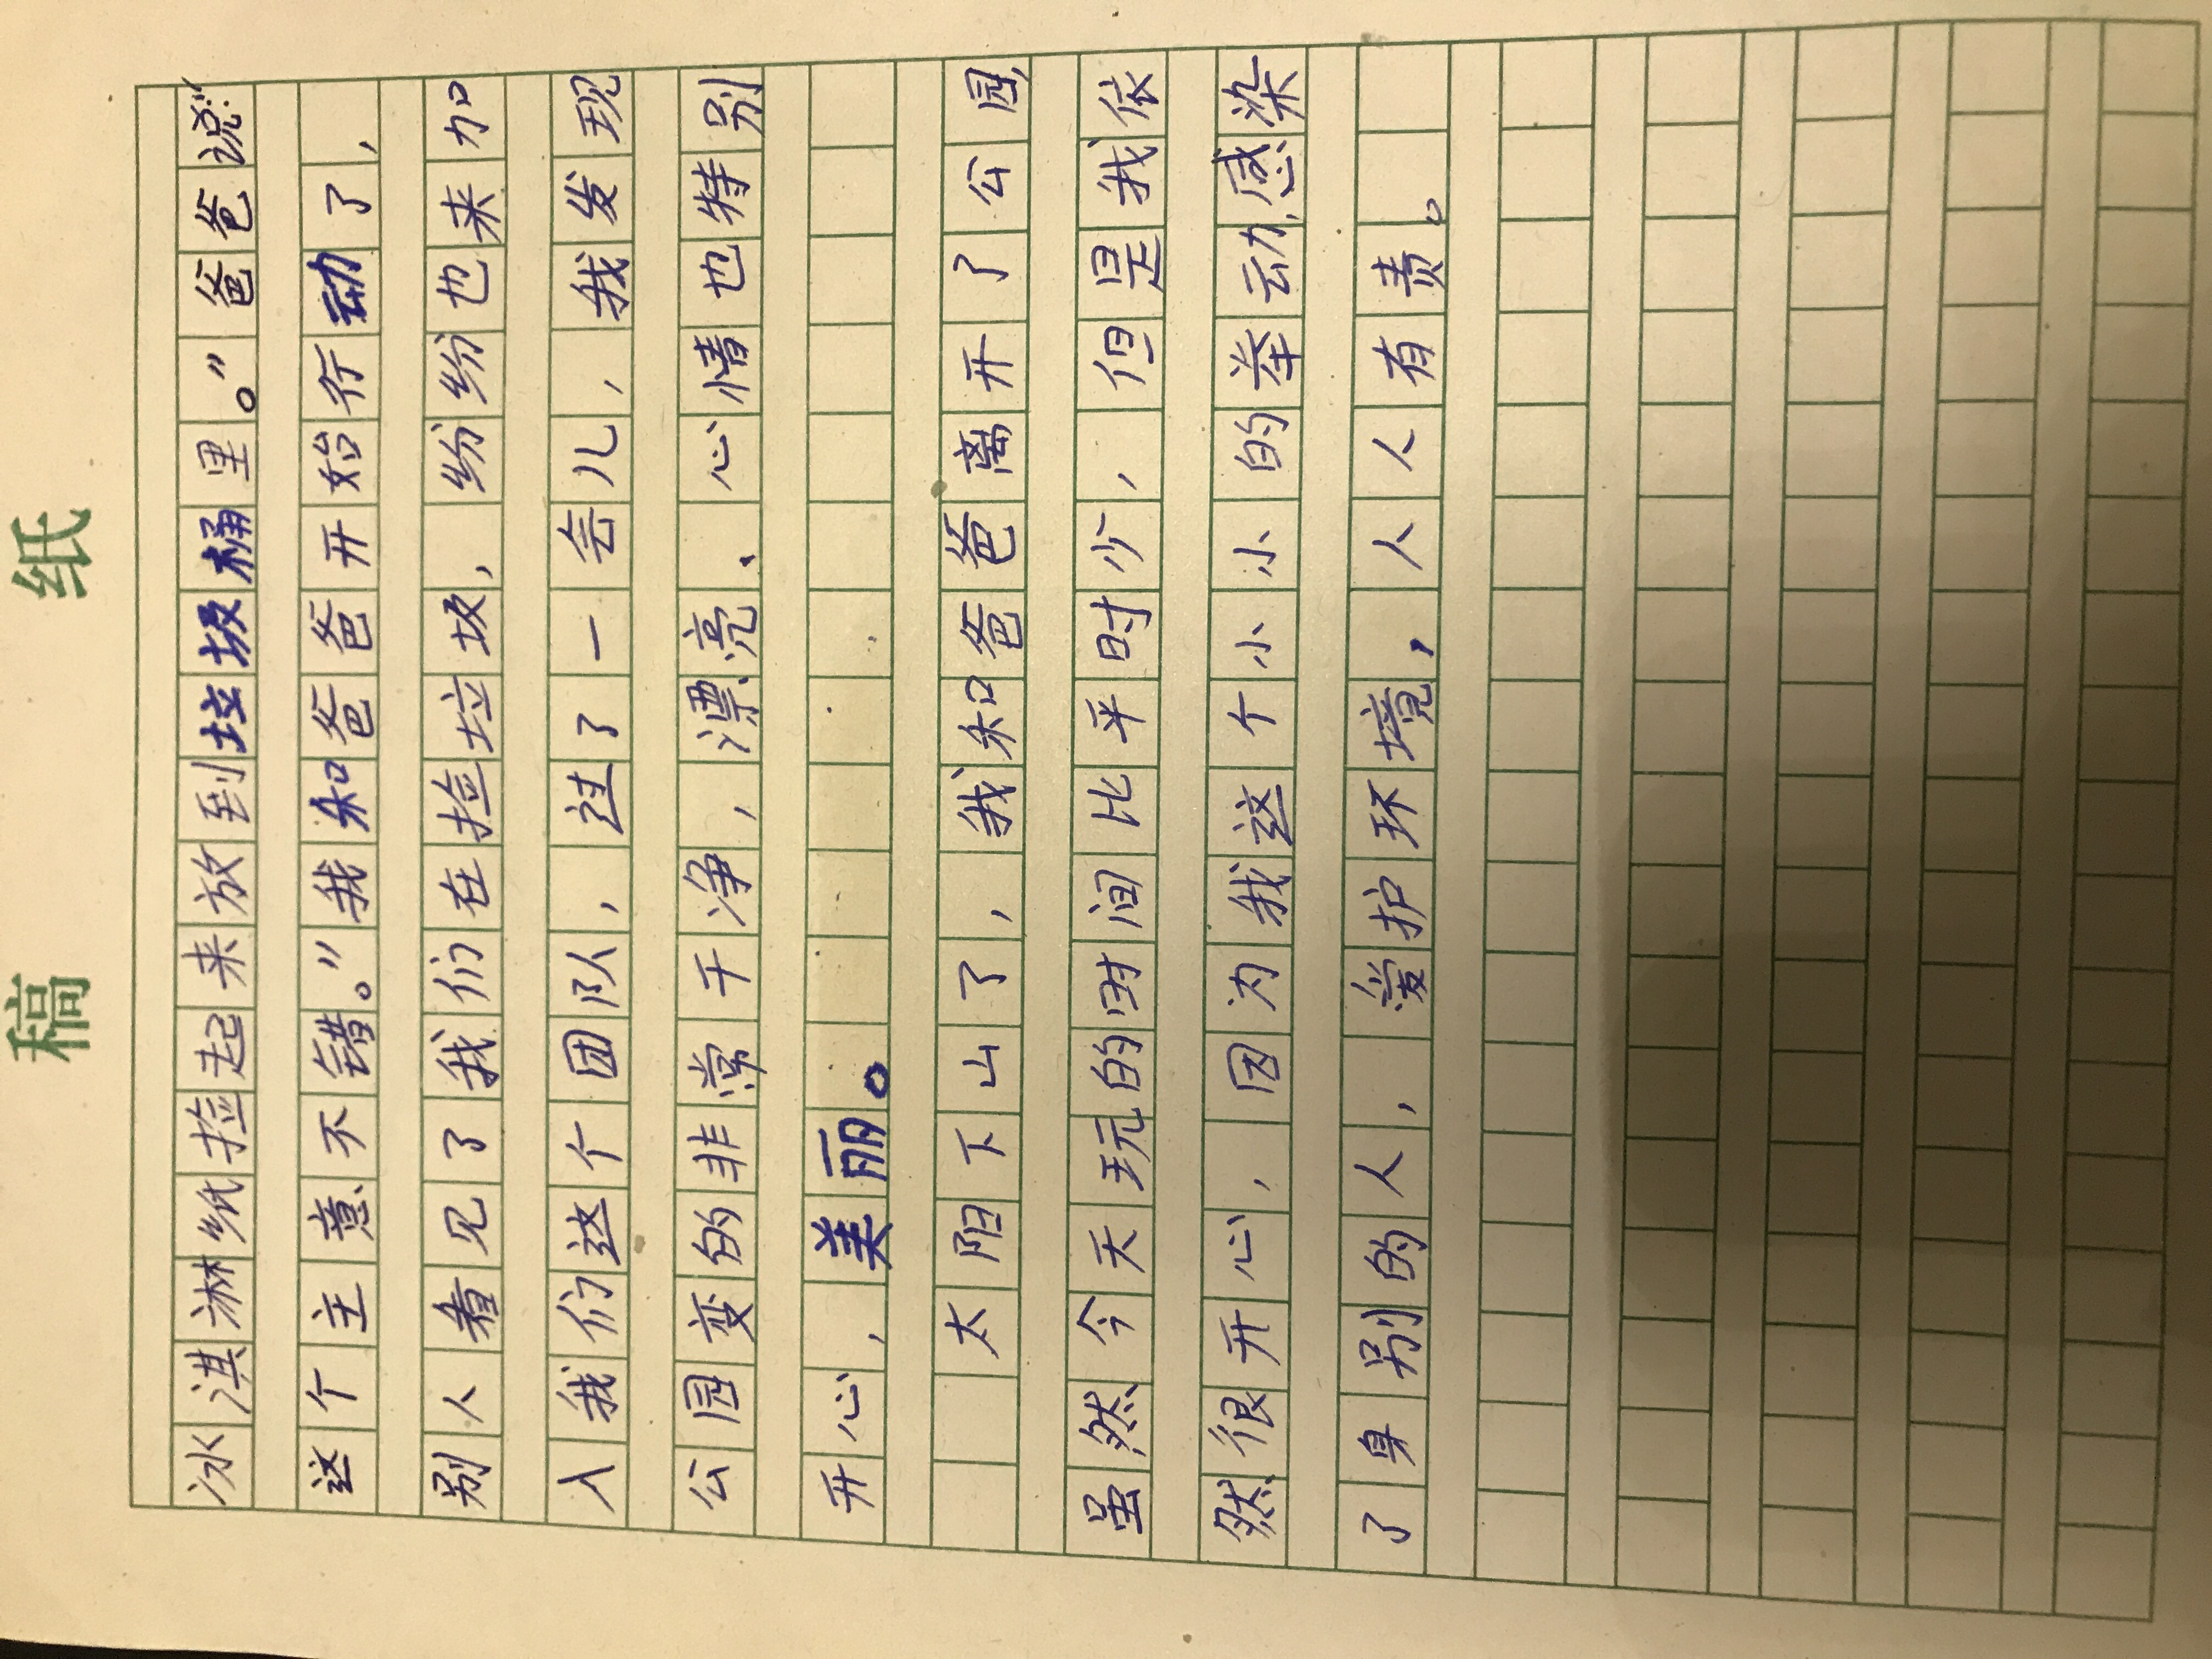 稿 纸
冰淇淋纸捡起来放到垃圾桶里。”爸爸说:“
这个主意不错。”我和爸爸开始行动了，
别人看见了我们在捡垃圾，纷纷也来加
入我们这个团队，过了一会儿，我发现
公园变的非常干净，漂亮、心情也特别
开心，美丽。
太阳下山了，我和爸爸离开了公园，
虽然今天玩的时间比平时少，但是我依
然很开心，因为我这个小小的举动，感染
了身别的人，爱护环境，人人有责。